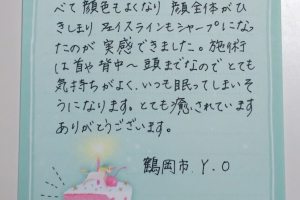 べて 顔色もよくなり 顔全体が ひ
きしまり フェイスラインも シャープになっ
たのが 実感できました。施術
は首や 背中〜 頭までなので とても
気持ちがよく、いつも眠ってしまいそ
うになります。とても癒されています
ありがとうございます。
鶴岡市 Y.O